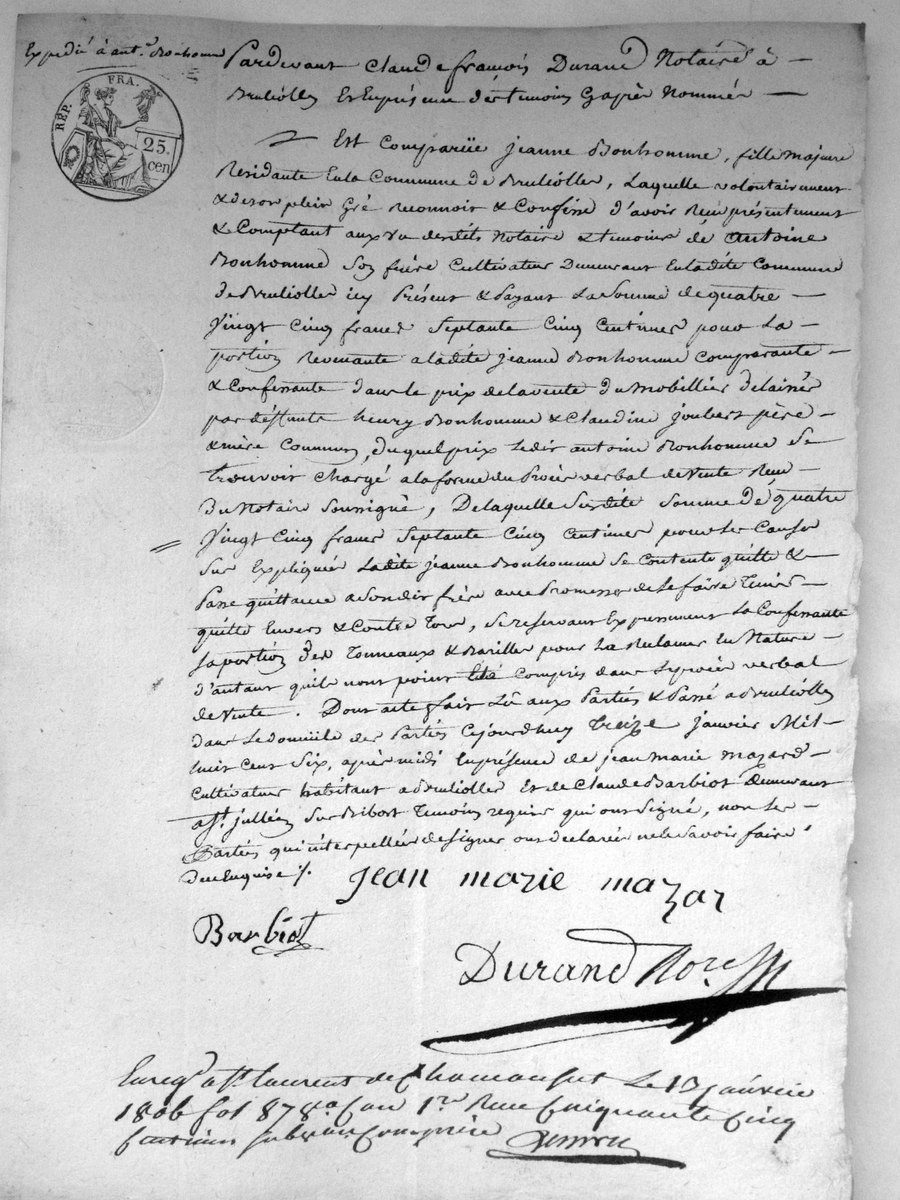 Expedié à ant.e Bonhomme
RÉP. FRA.
25.
cen
Pardevant Claude françois Durand Notaire à
Brulliolles Et Enprésence des temoins Cy après Nommés
Est Comparüe jeanne Bonhomme, fille majeure
Residante Enla Commune de Brulliolles, Laquelle volontairement
& deson plein Gré Reconnoit & Confesse d'avoir Reçu présentement
& Comptant aux vu desdits Notaire & temoins de Antoine
Bonhomme Son frère Cultivateur Demeurant Enladite Commune
de Brulliolles icy Présent & Payant La Somme de quatre
Vingt Cinq francs Septante Cinq Centimes pour La
portion Revenante a ladite jeanne Bonhomme Comparante
& Confessante dans le prix delavente du Mobillier delaissés
par déffunts henry Bonhomme & Claudine joubert père
& mère Communs, duquel prix Ledit antoine Bonhomme Se
trouvoit Chargé alaforme du Procès verbal deVente Reçu
du Notaire Soussigné, Delaquelle Susdite Somme de quatre
Vingt Cinq francs Septante Cinq Centimes pour les Causes
Sus Expliquées Ladite jeanne Bonhomme Se Contente quitte &
Passe quittance a Sondit frère avec Promesse de Le faire Tenir
quitte Envers & Contre Tous, Se reservant Expressement La Confessante
Saportion des Tonneaux & Barilles pour La Reclamer En Nature
d'autant qu'ils nont point été Compris dans Le procès verbal
deVente. Dont acte fait Lû aux Parties & Passé a Brulliolles
dans Le domicile des Parties Cejourdhuy treize janvier Mil
huit Cent Six, après midi Enprésence de jean Marie Mazard
Cultivateur habitant a Brulliolles Et de Claude Barbiot Demeurant
a St. jullien Sur Bibost Temoins requis qui ont Signé, non les
Parties qui interpellées designer ont declarés nele Savoir faire
deceEnquises /.
jean marie mazar
Barbiot
Durand Nore
Enregé a St laurent de Chamousset Le 13 janvier
1806 fol 87 8a Con 1re Reçu Cinquante Cinq